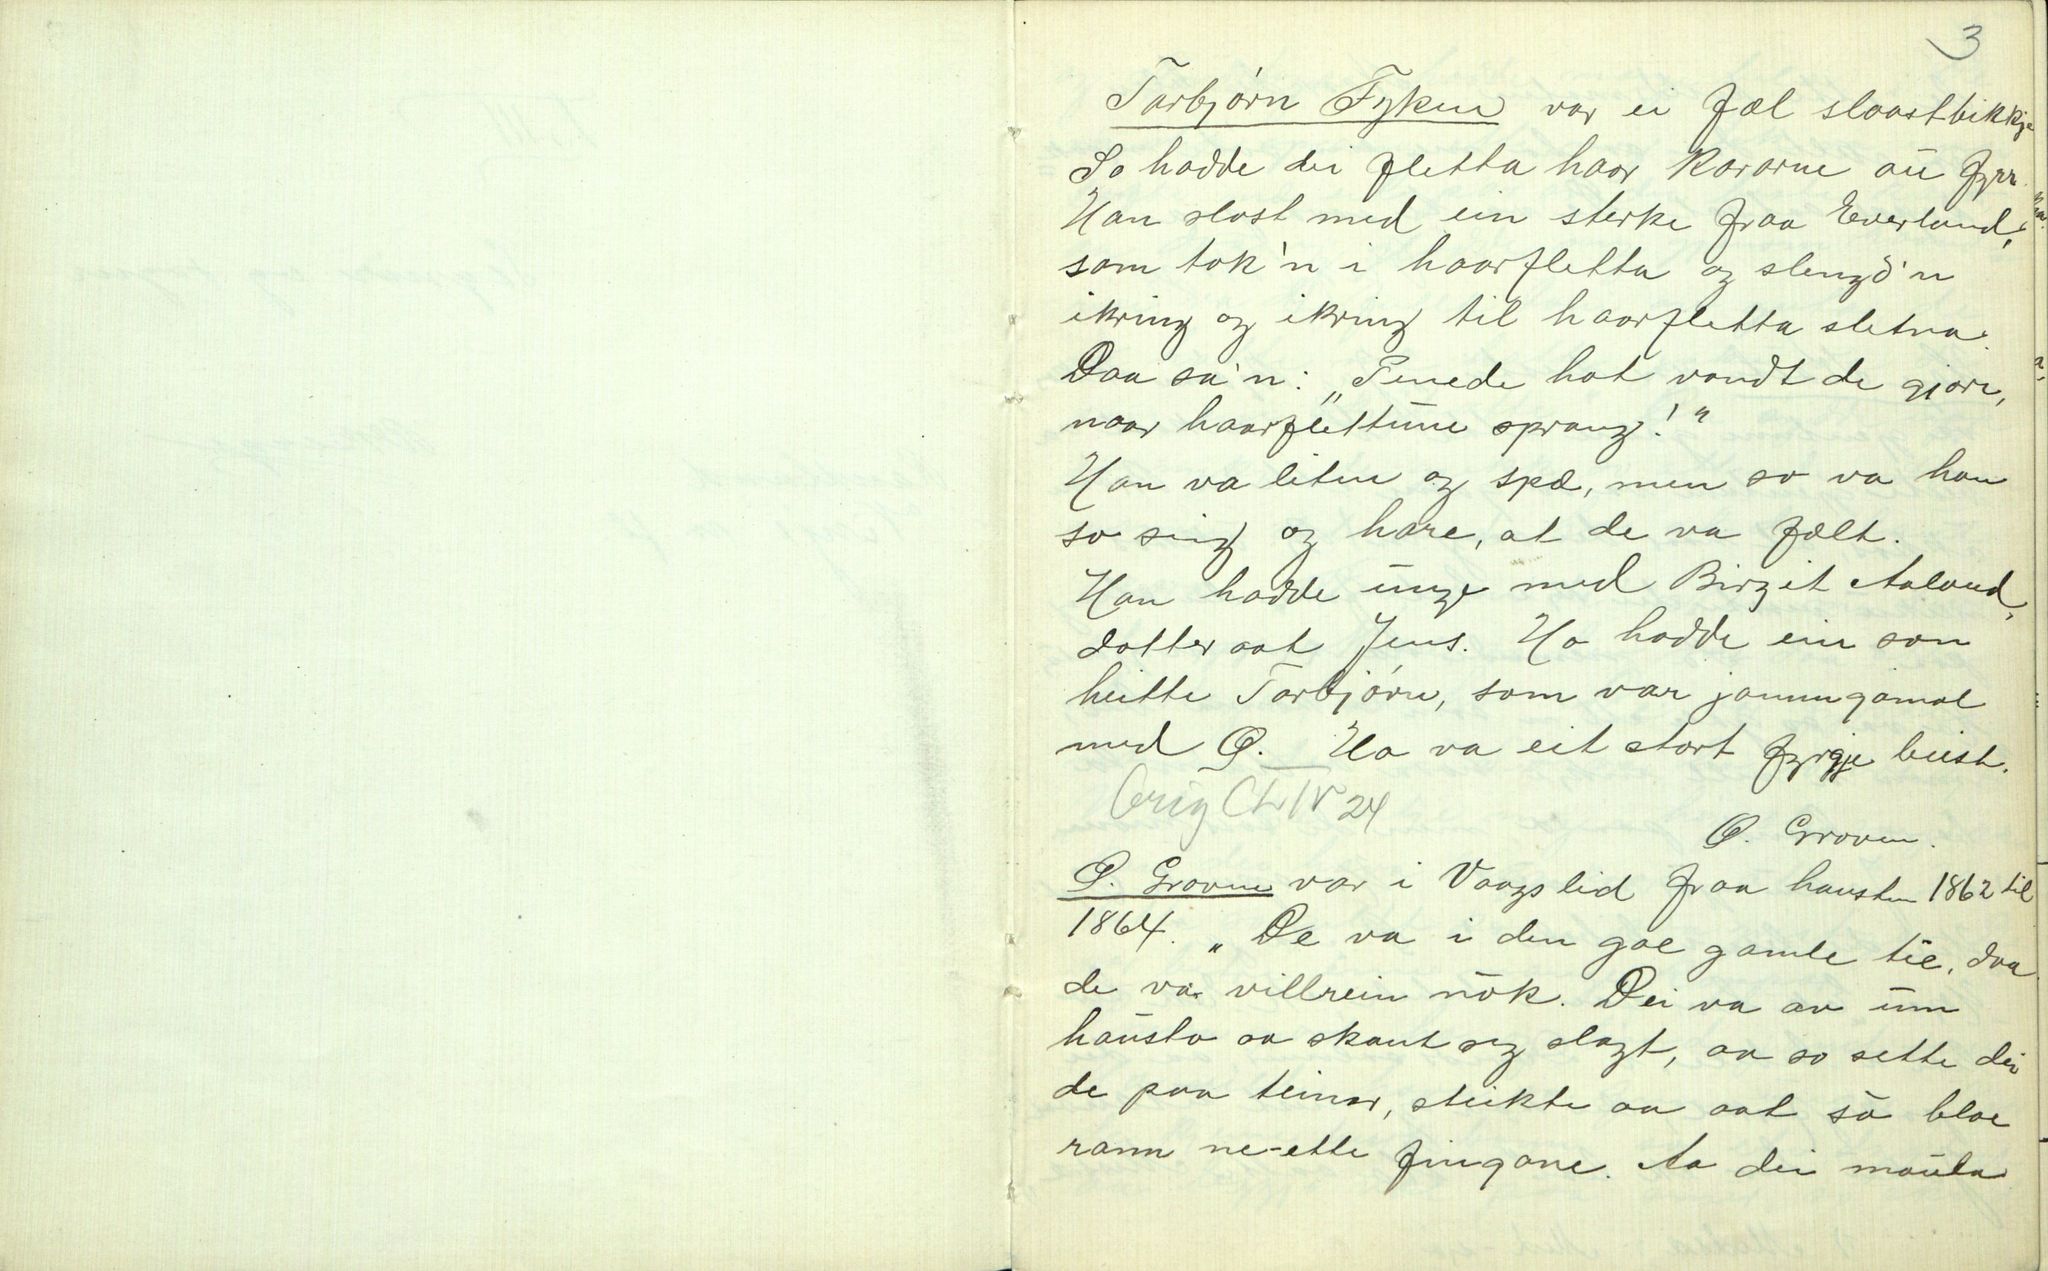 3
Tarbjørn Fyken var ei fæl slaastbikkje
So hadde dei fletta haar kararne au fyrr.
Han slost med ein sterke fraa Everland,
som tok'n i haarfletta og slengd'n
ikring og ikring til haarfletta sletna.
Daa sa'n: „Penede hot vondt de gjore,
naar haarflettune sprang!"
Han va liten og spæ, men so va han
so seig og hare, at de va fælt.
Han hadde unge med Birgit Aaland,
dotter aat Jens. Ho hadde ein son
heitte Tarbjørn, som var jamngamal
med Ø. Ho va eit stort fyrgje beist.
Orig Ch IV 24
Ø. Groven.
Ø. Groven var i Vaagslid fraa hausten 1862 til
1864. „De va i den goe gamle tie, daa
de va villrein nok. Dei va av um
hausta aa skaut seg slagt, aa so sette dei
de paa teinar, steikte aa aat so bloe
rann ne-ette fingane. Aa dei maula